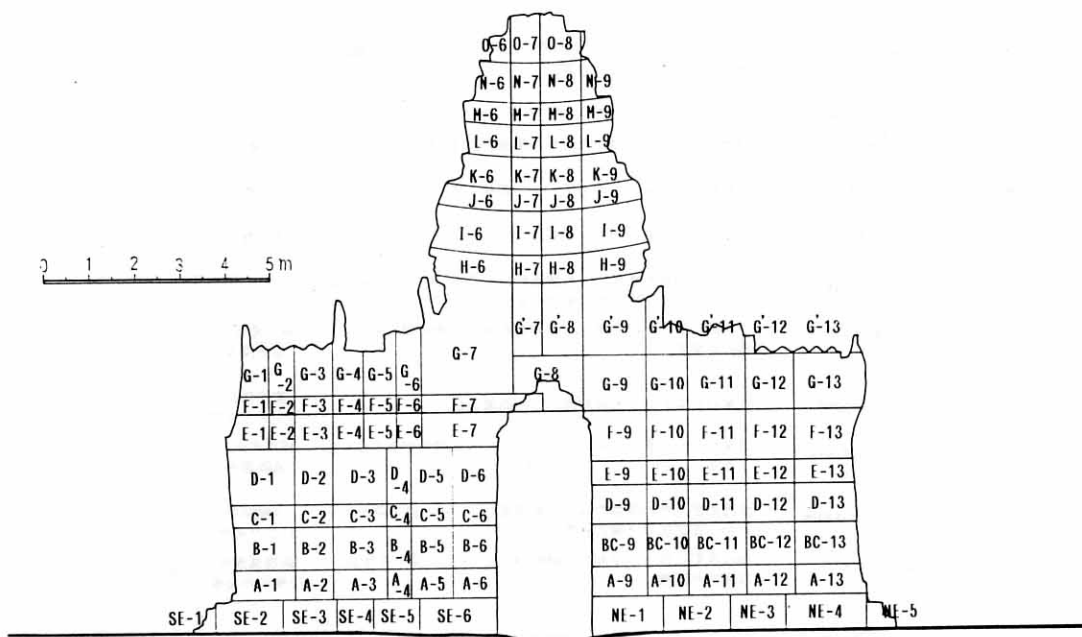 O-6 O-7 O-8
N-6 N-7 N-8 N-9
M-6 M-7 M-8 M-9
L-6 L-7 L-8 L-9
K-6 K-7 K-8 K-9
J-6 J-7 J-8 J-9
I-6 I-7 I-8 I-9
H-6 H-7 H-8 H-9
0 1 2 3 4 5 m
G'-7 G'-8 G'-9 G'-10 G'-11 G'-12 G'-13
G-1 G-2 G-3 G-4 G-5 G-6 G-7 G-8 G-9 G-10 G-11 G-12 G-13
F-1 F-2 F-3 F-4 F-5 F-6 F-7
E-1 E-2 E-3 E-4 E-5 E-6 E-7 F-9 F-10 F-11 F-12 F-13
D-1 D-2 D-3 D-4 D-5 D-6 E-9 E-10 E-11 E-12 E-13
C-1 C-2 C-3 C-4 C-5 C-6 D-9 D-10 D-11 D-12 D-13
B-1 B-2 B-3 B-4 B-5 B-6 BC-9 BC-10 BC-11 BC-12 BC-13
A-1 A-2 A-3 A-4 A-5 A-6 A-9 A-10 A-11 A-12 A-13
SE-1 SE-2 SE-3 SE-4 SE-5 SE-6 NE-1 NE-2 NE-3 NE-4 NE-5